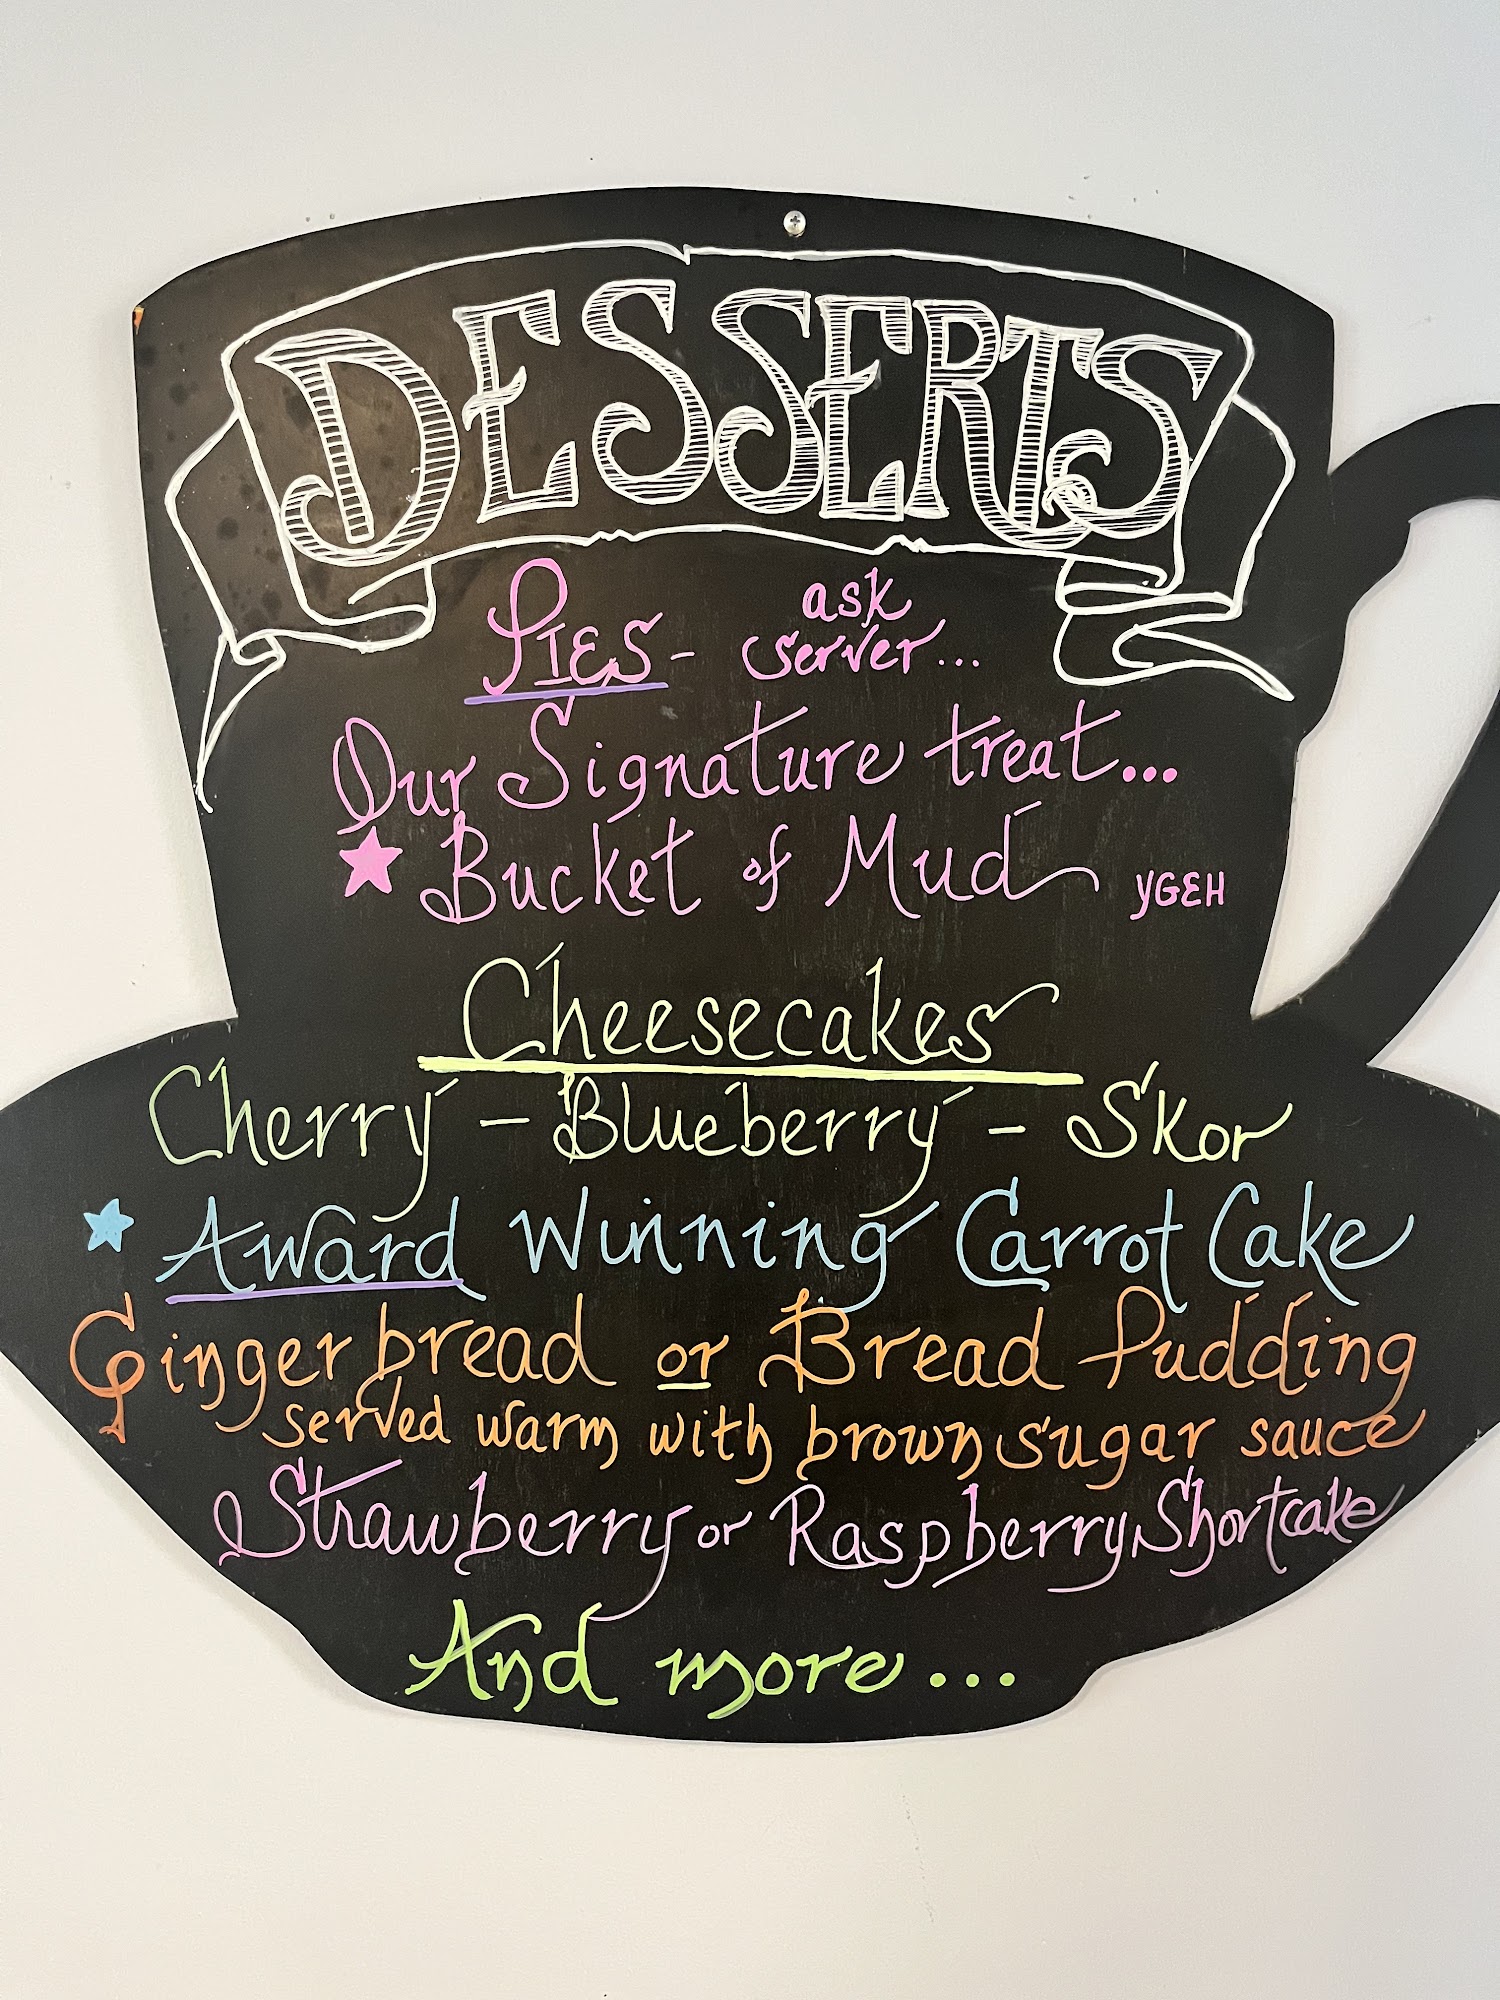 DESSERTS
PIES - ask server...
Our Signature treat...
Bucket of Mud YGEH
Cheesecakes
Cherry - Blueberry - Skor
Award Winning Carrot Cake
Gingerbread or Bread Pudding
served warm with brown sugar sauce
Strawberry or Raspberry Shortcake
And more...